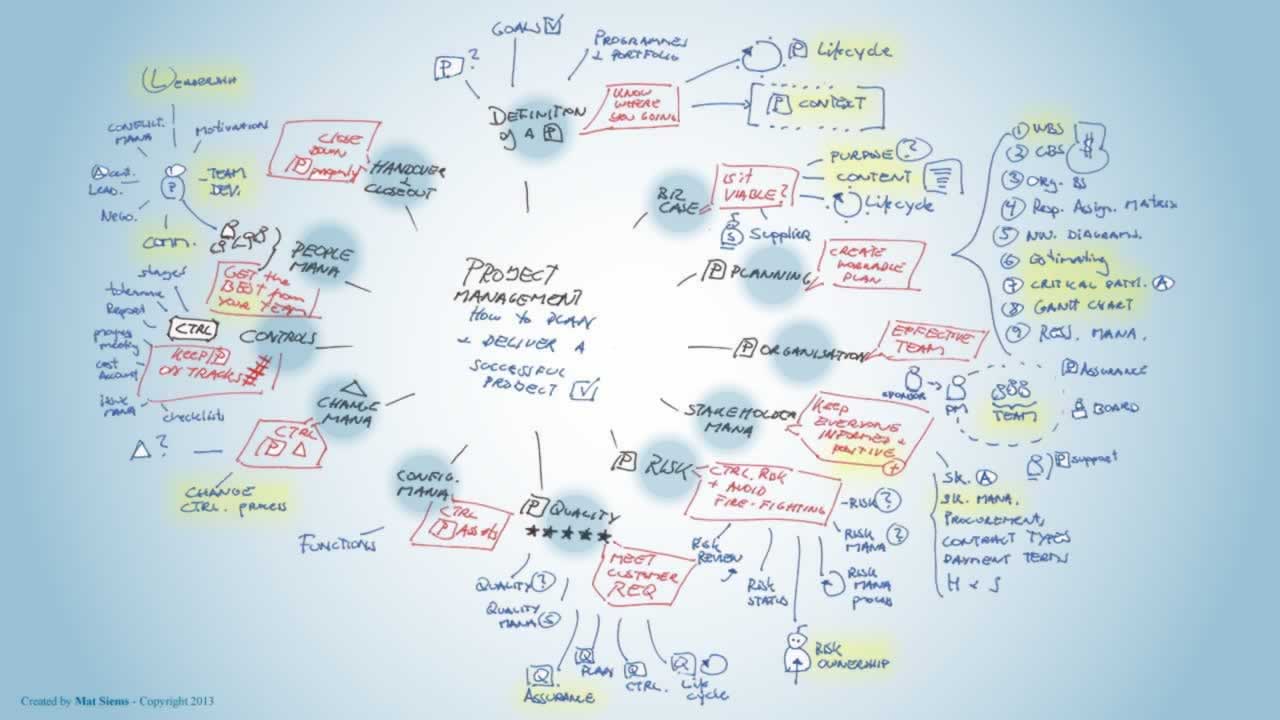 PROJECT
MANAGEMENT
HOW TO PLAN
+ DELIVER A
SUCCESSFUL
PROJECT
DEFINITION
of A P
P ?
GOALS
PROGRAMMES
+ PORTFOLIO
KNOW
WHERE
YOU GOING
P Lifecycle
P CONTEXT
BIZ
CASE
Is it
VIABLE?
PURPOSE ?
CONTENT
Lifecycle
Supplier
P PLANNING
CREATE
WORKABLE
PLAN
1 WBS
2 CBS
$
3 ORG. BS
4 Resp. Assign. MATRIX
5 NW. DIAGRAMS.
6 Estimating
7 CRITICAL PATH. A
8 GANTT CHART
9 RESS. MANA.
P ORGANISATION
EFFECTIVE
TEAM
SPONSOR
PM
TEAM
P ASSURANCE
BOARD
P support
STAKEHOLDER
MANA
KEEP
EVERYONE
INFORMED +
POSITIVE
+
SK. A
SK. MANA.
PROCUREMENT,
CONTRACT TYPES
PAYMENT TERMS
H + S
P RISK
CTRL. RISK
+ AVOID
FIRE-FIGHTING
RISK ?
RISK
MANA ?
RISK
MANA
process
RISK
OWNERSHIP
RISK
STATUS
RISK
REVIEW
P QUALITY
MEET
CUSTOMER
REQ
QUALITY ?
QUALITY
MANA S
Q
ASSURANCE
Q
PLAN
Q
CTRL.
Q
Life
cycle
CONFIG.
MANA
CTRL
P Assets
FUNCTIONS
CHANGE
MANA
CTRL
P
?
CHANGE
CTRL. process
CONTROLS
KEEP P
ON TRACKS
CTRL
stages
tolerance
Report
progress
meeting
cost
Account
issue
MANA
checklists
PEOPLE
MANA
GET the
BEST from
YOUR TEAM
LEADERSHIP
CONFLICT.
MANA
MOTIVATION
LEAD.
TEAM
DEV.
NEGO.
COMM.
HANDOVER
+
CLOSEOUT
CLOSE
DOWN
P properly
Created by Mat Siems - Copyright 2013